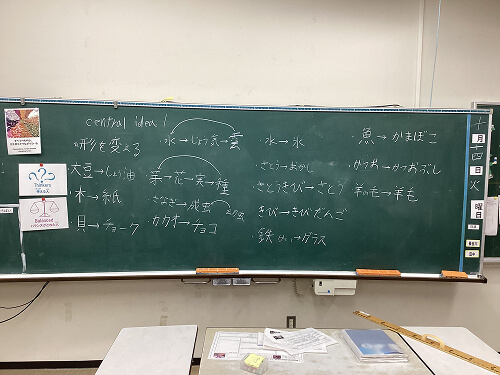 central idea 1
・形を変える
大豆→しょう油
・木→紙
・貝→チョーク
・水→じょう気→雲
葉→花→実→種
・さなぎ→成虫
・カカオ→チョコ
・水→氷
・さとう→おかし
・さとうきび→さとう
きび→きびだんご
・鉄
ガラス
・魚→かまぼこ
・かつお→かつおぶし
羊の毛→羊毛
Thinkers
Balanced
月
日
火
曜
日